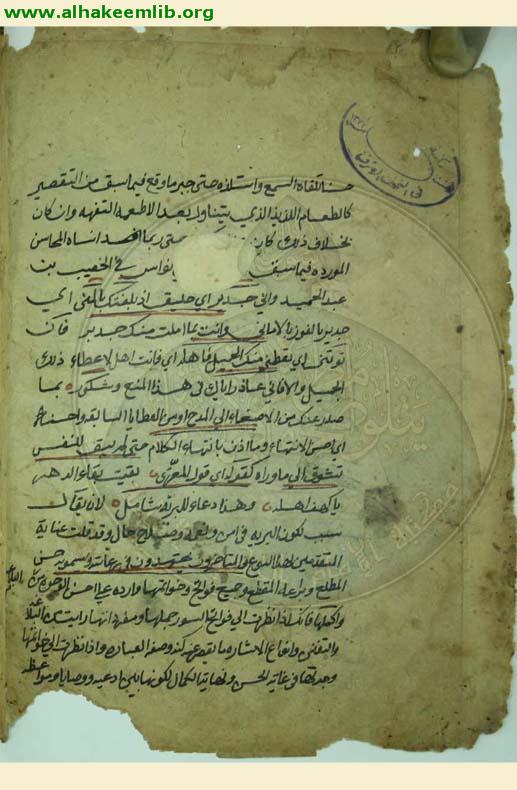 www.alhakeemlib.org
حسنا تلقاه السمع واستلذه حتى جبر ما وقع فيما سبق من التقصير
كالطعام اللذيذ الذي يتناول بعد الاطعمة التفهه وان كان
بخلاف ذلك كان حتى ربما افسد انساه المحاسن
المورده فيما سبق نواس في الخصيب بن
عبد الحميد واني جدير اي خليق اذ بلغتك بالمنى اي
جدير بالفوز بالاماني وانت بما املت منك جدير فان
تولني اي تعطني منك الجميل فاهله اي فانت اهل لاعطاء ذلك
الجميل والا فاني عاذر اياك في هذا المنع وشكور بما
صدر عنك من الاصغاء الى المدح او من العطايا السابقة واحسنه
اي احسن الانتهاء ما اذن بانتهاء الكلام حتى لم يبق للنفس
تشوق الى ما وراه كقوله اي قول المعري بقيت بقاء الدهر
يا كهف اهله وهذا دعاء للبرية شامل لان بقاك
سبب لكون البرية في امن ونعمة وصلاح حال وقد قلت عناية
المتقدمين بهذا النوع والمتاخرون يجتهدون في رعايته ويسمونه حسن
المطلع وبراعة المقطع وجميع فواتح وخواتمها وارده على احسن الوجوه من البلاغة
واكملها فانك اذا نظرت الى فواتح السور جملها ومفرداتها رايت من البلاغة
والتفنن وانواع الاشارة ما يقصر عن كنه وصفه العبارة واذا نظرت الى خواتمها
وجدتها في غاية الحسن ونهاية الكمال لكونها بين ادعية ووصايا ومواعظ